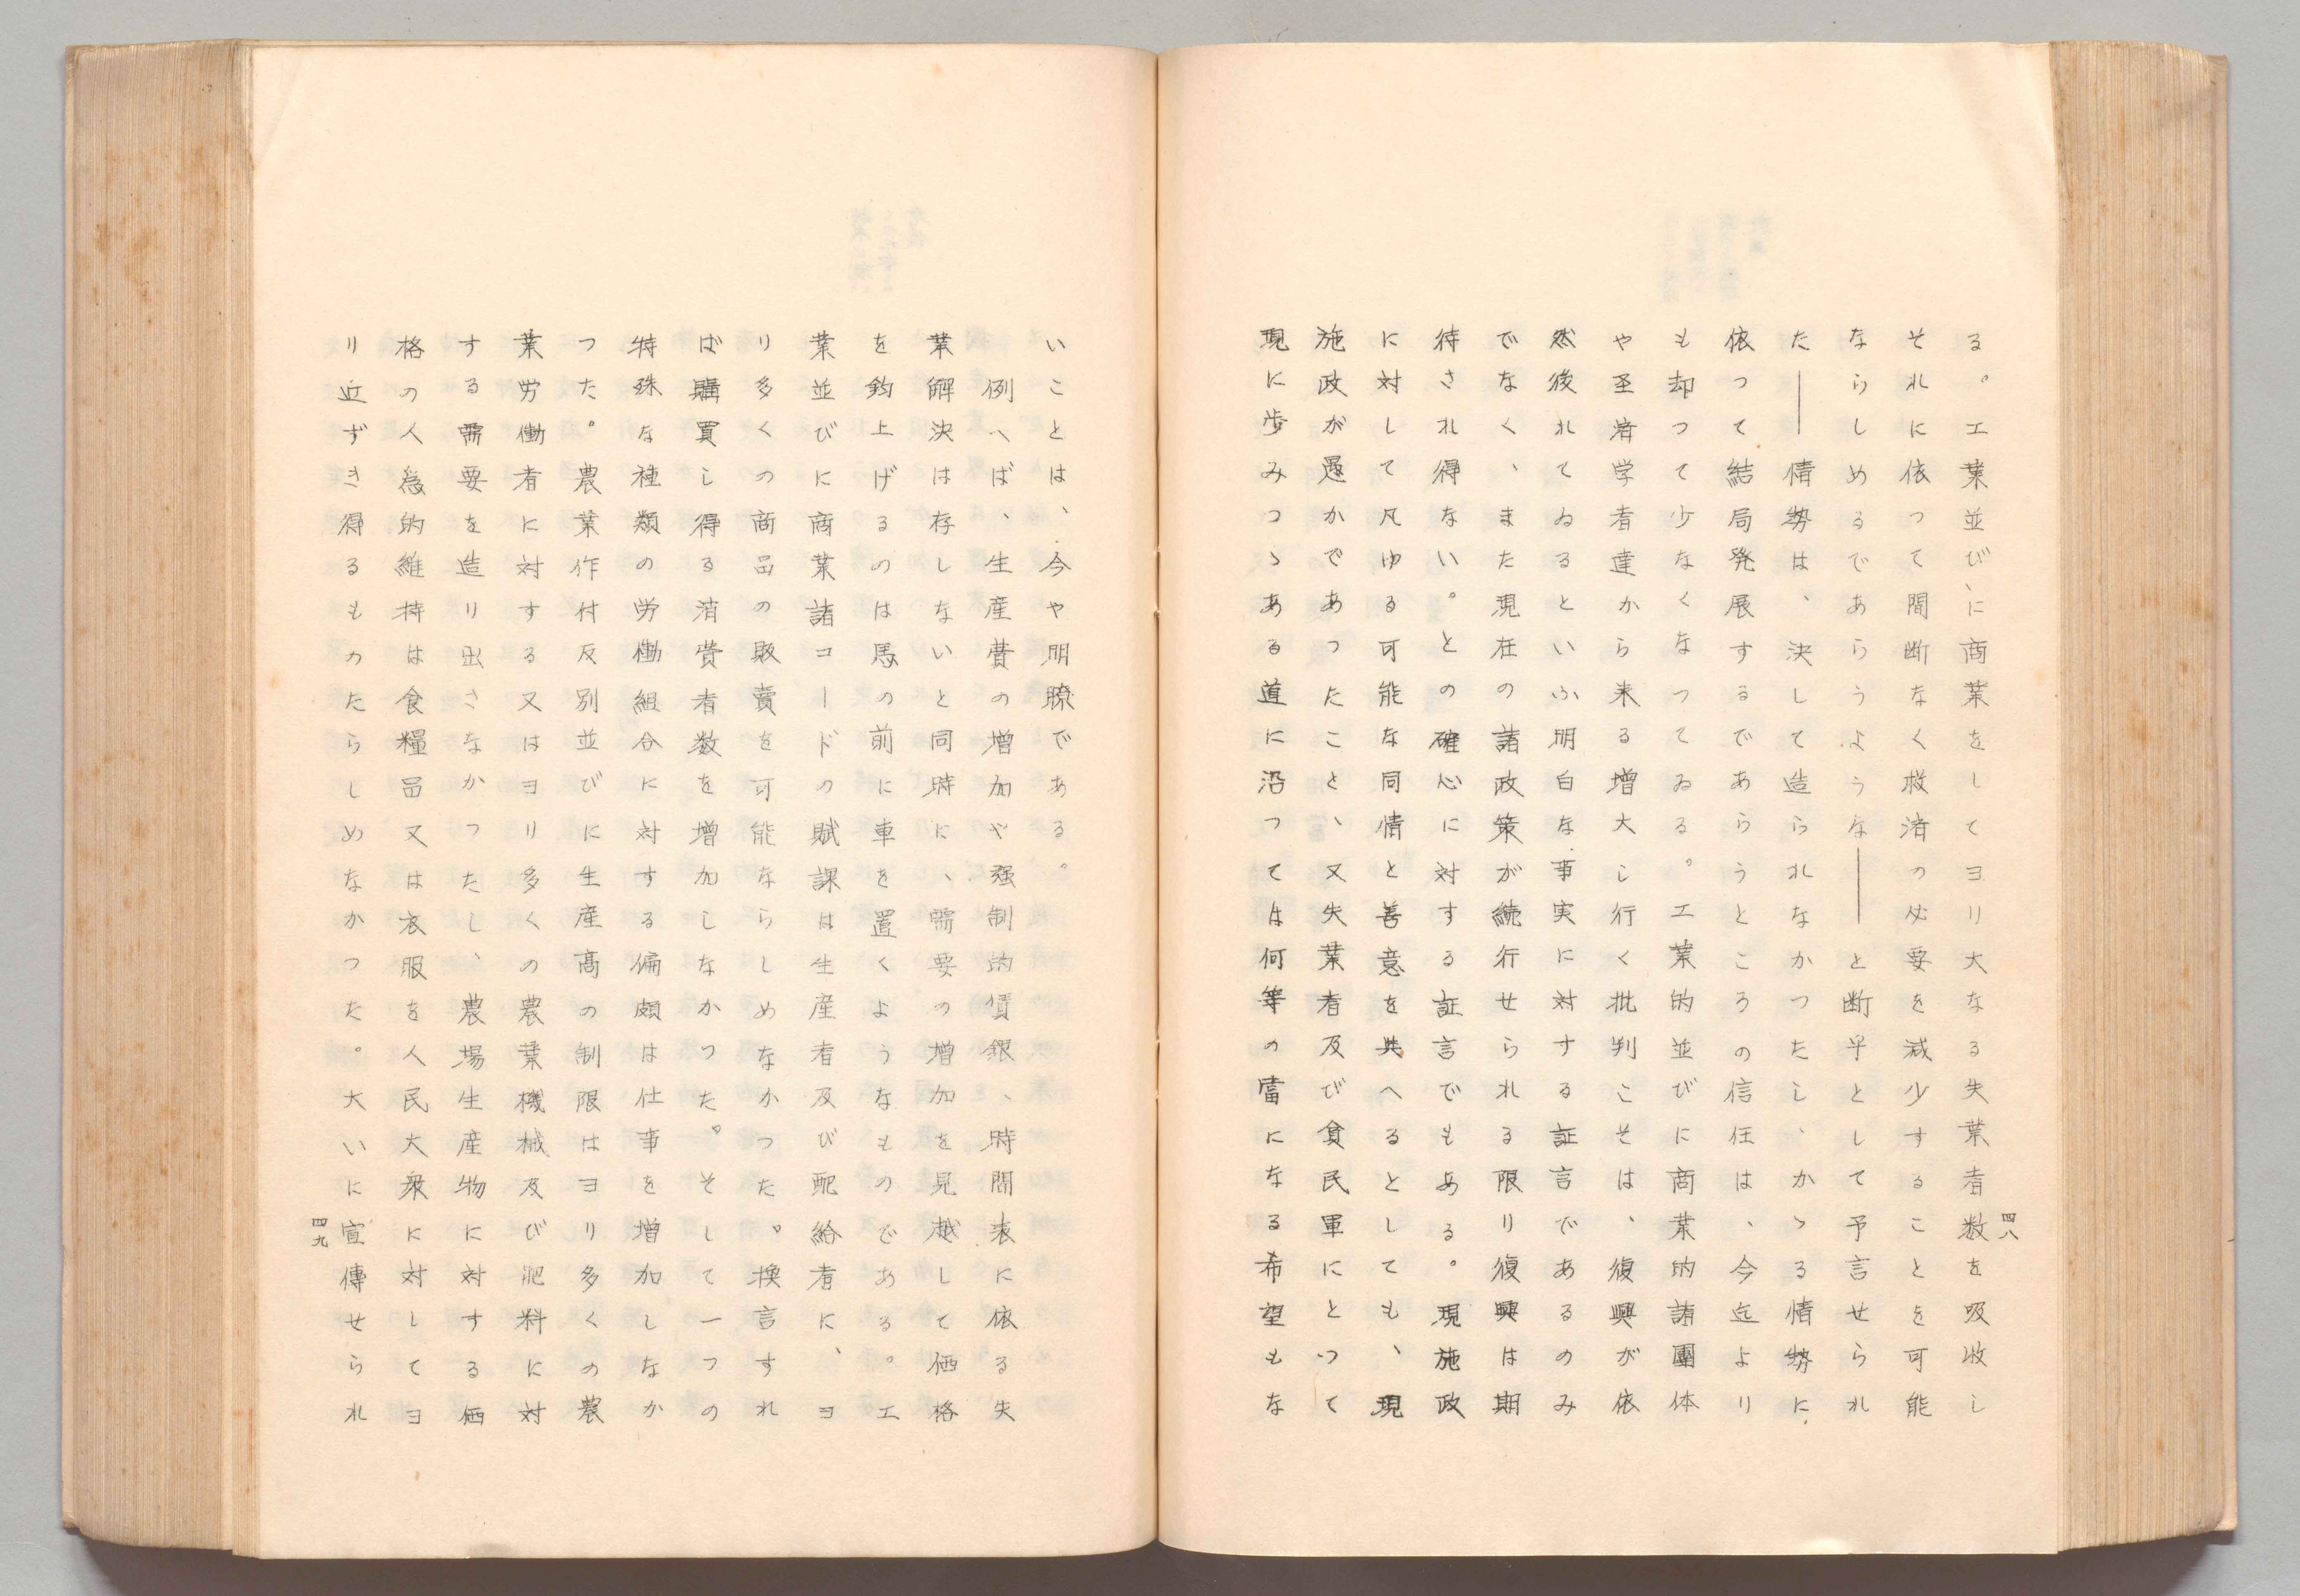 四八
る。工業並びに商業をしてヨリ大なる失業者数を吸收し
それに依つて間断なく救済の必要を減少することを可能
ならしめるであらうような――と断乎として予言せられ
た――情勢は、決して造られなかつたし、かゝる情勢に
依つて結局発展するであらうところの信任は、今迄より
も却つて少なくなつてゐる。工業的並びに商業的諸團体
や圣済学者達から来る増大し行く批判こそは、復興が依
然後れてゐるといふ明白な事実に対する証言であるのみ
でなく、また現在の諸政策が続行せられる限り復興は期
待され得ない。との確心に対する証言でもある。現施政
に対して凡ゆる可能な同情と善意を共へるとしても、現
施政が愚かであつたこと、又失業者及び貧民軍にとつて
現に歩みつゝある道に沿つては何等の富になる希望もな
いことは、今や明瞭である。
例へば、生産費の増加や强制的債銀、時間表に依る失
業解決は存しないと同時に、需要の増加を見越して価格
を釣上げるのは馬の前に車を置くようなものである。工
業並びに商業諸コードの賦課は生産者及び配給者に、ヨ
り多くの商品の販賣を可能ならしめなかつた。換言すれ
ば購買し得る消費者数を増加しなかつた。そして一つの
特殊な種類の労働組合に対する偏頗は仕事を増加しなか
つた。農業作付反別並びに生産高の制限はヨリ多くの農
業労働者に対する又はヨリ多くの農業機械及び肥料に対
する需要を造り出さなかつたし、農場生産物に対する価
格の人為的維持は食糧品又は衣服を人民大衆に対してヨ
リ近ずき得るものたらしめなかつた。大いに宣傳せられ
四九